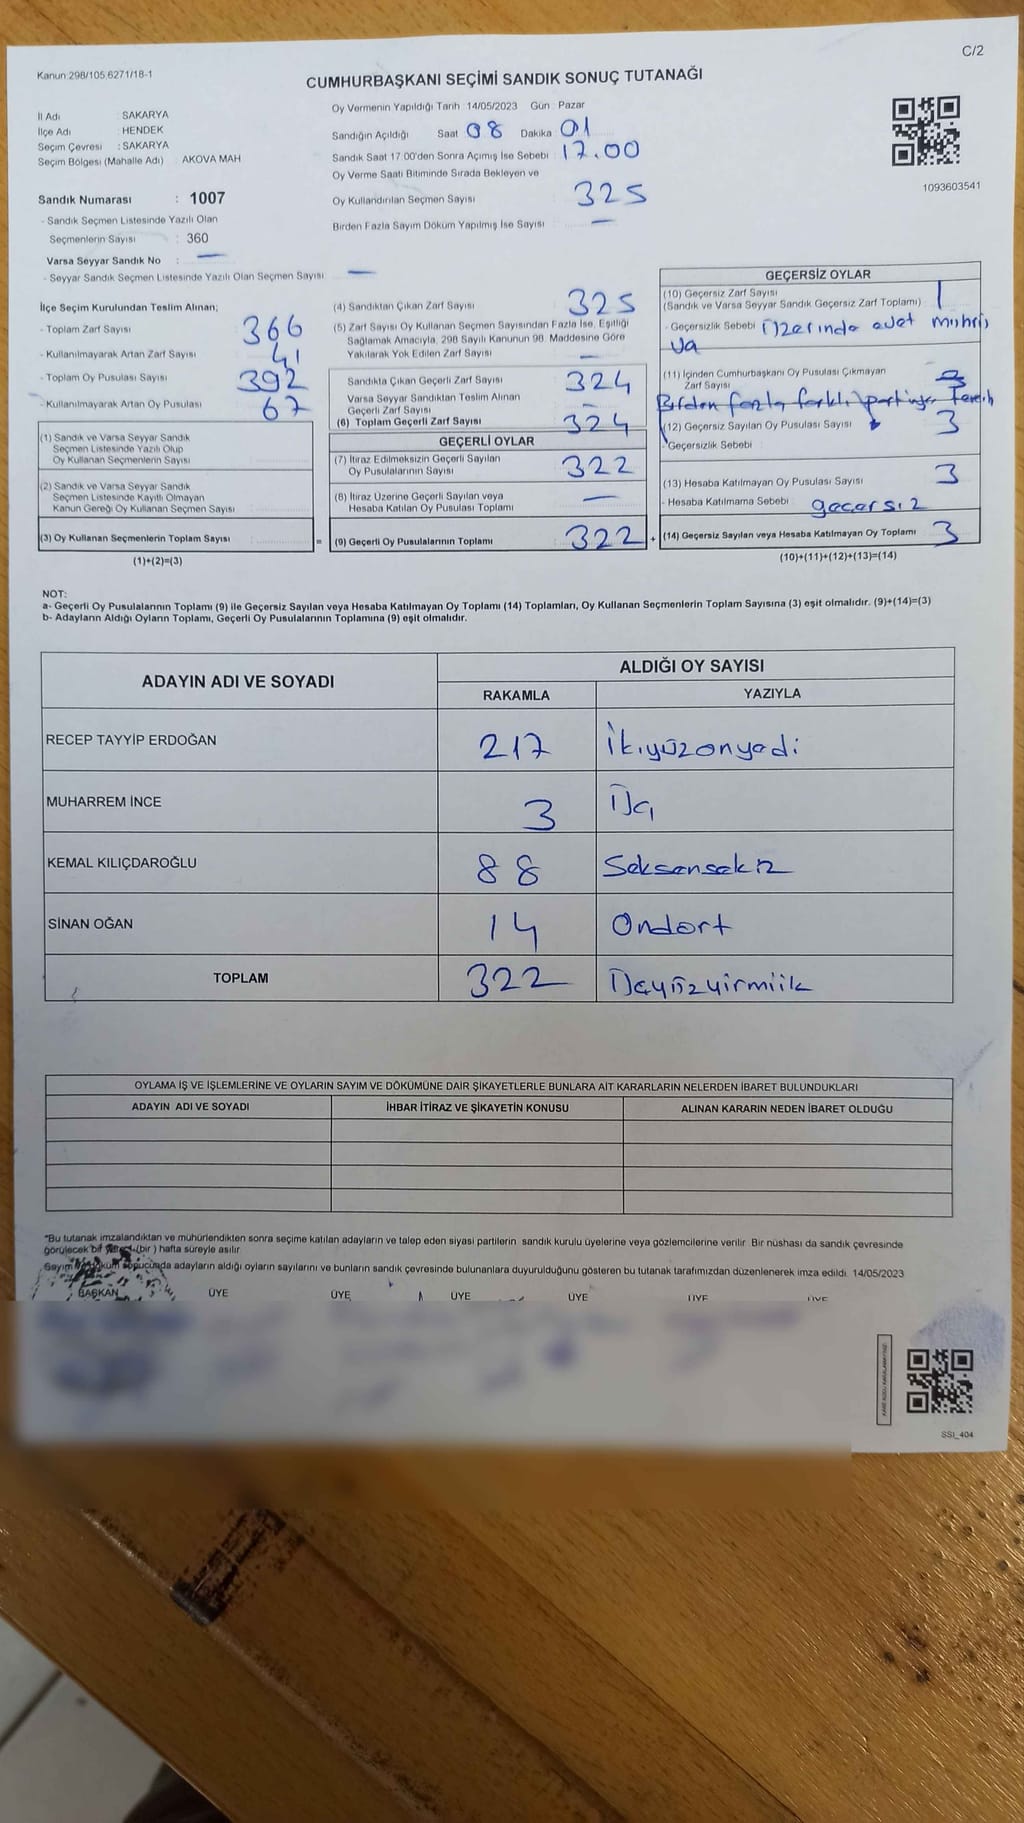 C/2
Kanun:298/105,6271/18-1
CUMHURBAŞKANI SEÇİMİ SANDIK SONUÇ TUTANAĞI
İl Adı : SAKARYA
İlçe Adı : HENDEK
Seçim Çevresi : SAKARYA
Seçim Bölgesi (Mahalle Adı) : AKOVA MAH
Sandık Numarası : 1007
- Sandık Seçmen Listesinde Yazılı Olan
Seçmenlerin Sayısı : 360
Varsa Seyyar Sandık No : —
- Seyyar Sandık Seçmen Listesinde Yazılı Olan Seçmen Sayısı —
Oy Vermenin Yapıldığı Tarih 14/05/2023 Gün : Pazar
Sandığın Açıldığı Saat 08 Dakika 01
Sandık Saat 17.00'den Sonra Açımış İse Sebebi : 17.00
Oy Verme Saati Bitiminde Sırada Bekleyen ve
Oy Kullandırılan Seçmen Sayısı 325
Birden Fazla Sayım Döküm Yapılmış İse Sayısı —
1093603541
İlçe Seçim Kurulundan Teslim Alınan;
- Toplam Zarf Sayısı 366
- Kullanılmayarak Artan Zarf Sayısı 41
- Toplam Oy Pusulası Sayısı 392
- Kullanılmayarak Artan Oy Pusulası 67
(1) Sandık ve Varsa Seyyar Sandık
Seçmen Listesinde Yazılı Olup
Oy Kullanan Seçmenlerin Sayısı
(2) Sandık ve Varsa Seyyar Sandık
Seçmen Listesinde Kayıtlı Olmayan
Kanun Gereği Oy Kullanan Seçmen Sayısı
(3) Oy Kullanan Seçmenlerin Toplam Sayısı =
(1)+(2)=(3)
(4) Sandıktan Çıkan Zarf Sayısı 325
(5) Zarf Sayısı Oy Kullanan Seçmen Sayısından Fazla İse, Eşitliği
Sağlamak Amacıyla, 298 Sayılı Kanunun 98. Maddesine Göre
Yakılarak Yok Edilen Zarf Sayısı —
Sandıkta Çıkan Geçerli Zarf Sayısı 324
Varsa Seyyar Sandıktan Teslim Alınan
Geçerli Zarf Sayısı
(6) Toplam Geçerli Zarf Sayısı 324
GEÇERLİ OYLAR
(7) İtiraz Edilmeksizin Geçerli Sayılan
Oy Pusulalarının Sayısı 322
(8) İtiraz Üzerine Geçerli Sayılan veya
Hesaba Katılan Oy Pusulası Toplamı —
(9) Geçerli Oy Pusulalarının Toplamı 322 +
GEÇERSİZ OYLAR
(10) Geçersiz Zarf Sayısı
(Sandık ve Varsa Seyyar Sandık Geçersiz Zarf Toplamı) 1
- Geçersizlik Sebebi Üzerinde evet mührü
va
(11) İçinden Cumhurbaşkanı Oy Pusulası Çıkmayan
Zarf Sayısı
Birden fazla farklı partiye tercih
(12) Geçersiz Sayılan Oy Pusulası Sayısı 3
- Geçersizlik Sebebi
(13) Hesaba Katılmayan Oy Pusulası Sayısı 3
- Hesaba Katılmama Sebebi geçersiz
(14) Geçersiz Sayılan veya Hesaba Katılmayan Oy Toplamı 3
(10)+(11)+(12)+(13)=(14)
NOT:
a- Geçerli Oy Pusulalarının Toplamı (9) ile Geçersiz Sayılan veya Hesaba Katılmayan Oy Toplamı (14) Toplamları, Oy Kullanan Seçmenlerin Toplam Sayısına (3) eşit olmalıdır. (9)+(14)=(3)
b- Adayların Aldığı Oyların Toplamı, Geçerli Oy Pusulalarının Toplamına (9) eşit olmalıdır.
ADAYIN ADI VE SOYADI
ALDIĞI OY SAYISI
RAKAMLA YAZIYLA
RECEP TAYYİP ERDOĞAN 217 İkiyüzonyedi
MUHARREM İNCE 3 Üç
KEMAL KILIÇDAROĞLU 88 Seksensekiz
SİNAN OĞAN 14 Ondort
TOPLAM 322 Üçyüzyirmiik
OYLAMA İŞ VE İŞLEMLERİNE VE OYLARIN SAYIM VE DÖKÜMÜNE DAİR ŞİKAYETLERLE BUNLARA AİT KARARLARIN NELERDEN İBARET BULUNDUKLARI
ADAYIN ADI VE SOYADI İHBAR İTİRAZ VE ŞİKAYETİN KONUSU ALINAN KARARIN NEDEN İBARET OLDUĞU
*Bu tutanak imzalandıktan ve mühürlendikten sonra seçime katılan adayların ve talep eden siyasi partilerin sandık kurulu üyelerine veya gözlemcilerine verilir. Bir nüshası da sandık çevresinde
görülecek bir (bir) hafta süreyle asılır.
Sayım döküm sonucunda adayların aldığı oyların sayılarını ve bunların sandık çevresinde bulunanlara duyurulduğunu gösteren bu tutanak tarafımızdan düzenlenerek imza edildi. 14/05/2023
BAŞKAN ÜYE ÜYE ÜYE ÜYE ÜYE ÜYE
SSI_404